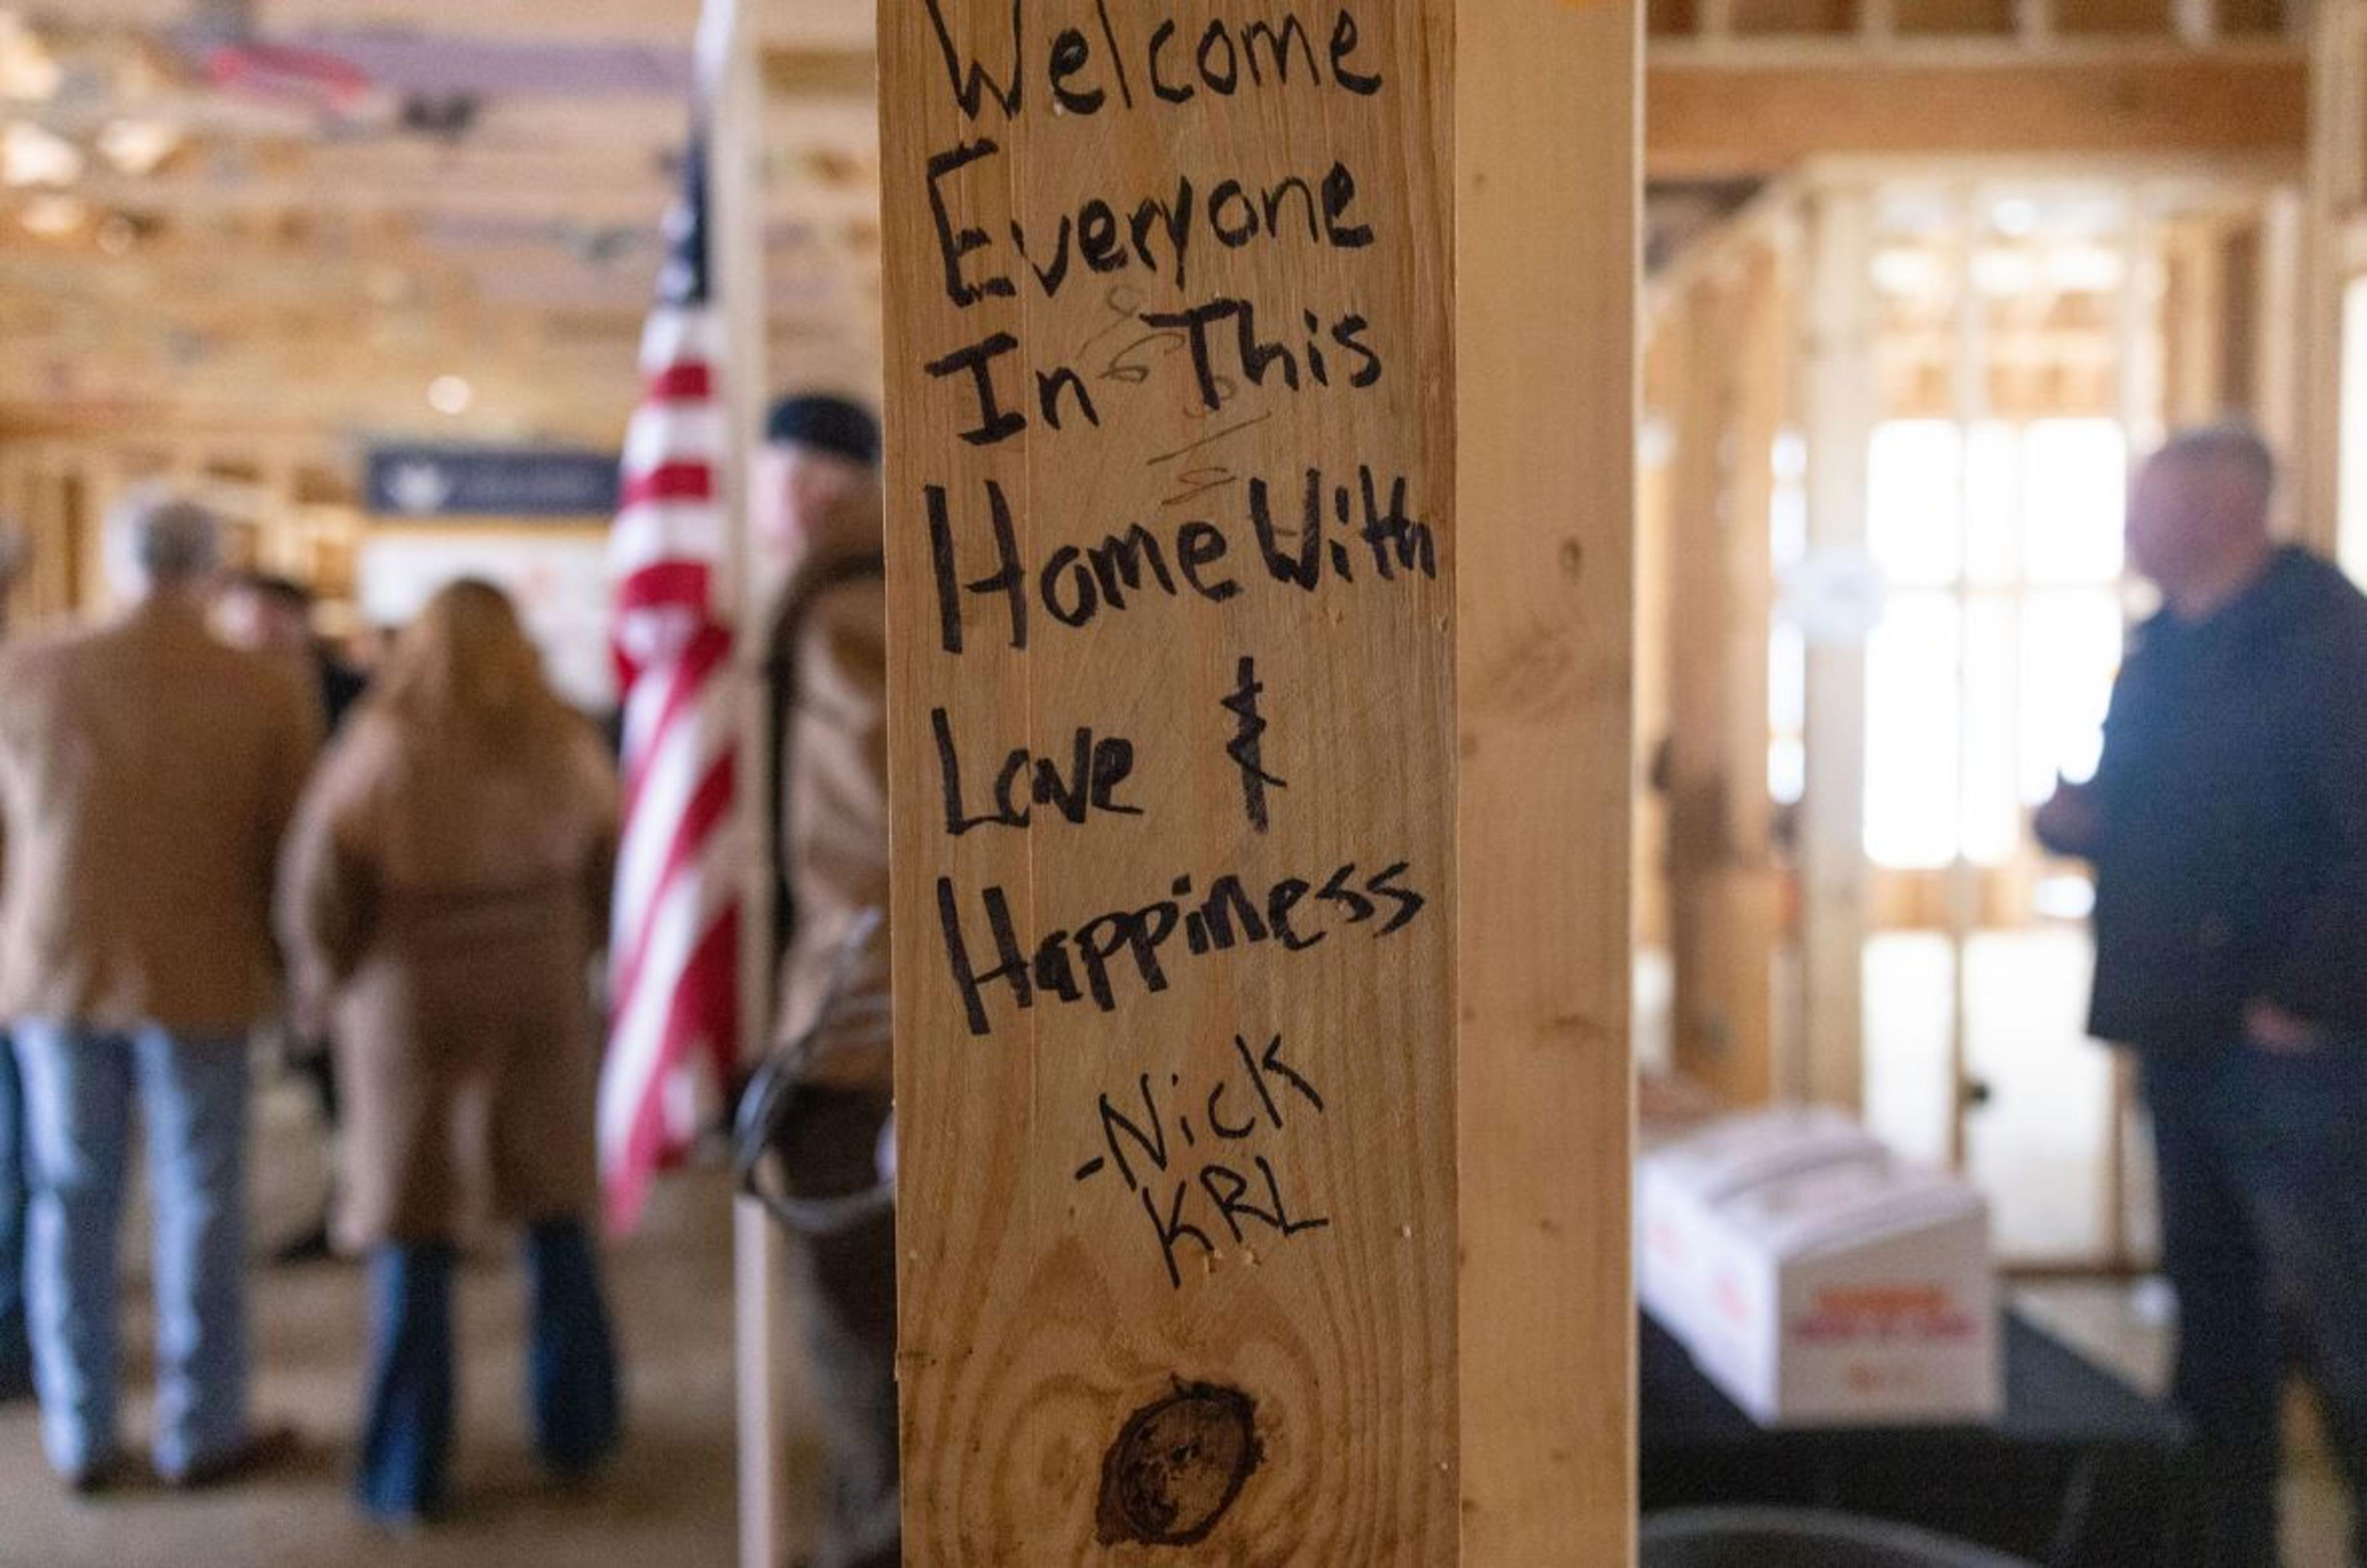 Welcome
Everyone
In This
Home With
Love &
Happiness
-Nick
KRL